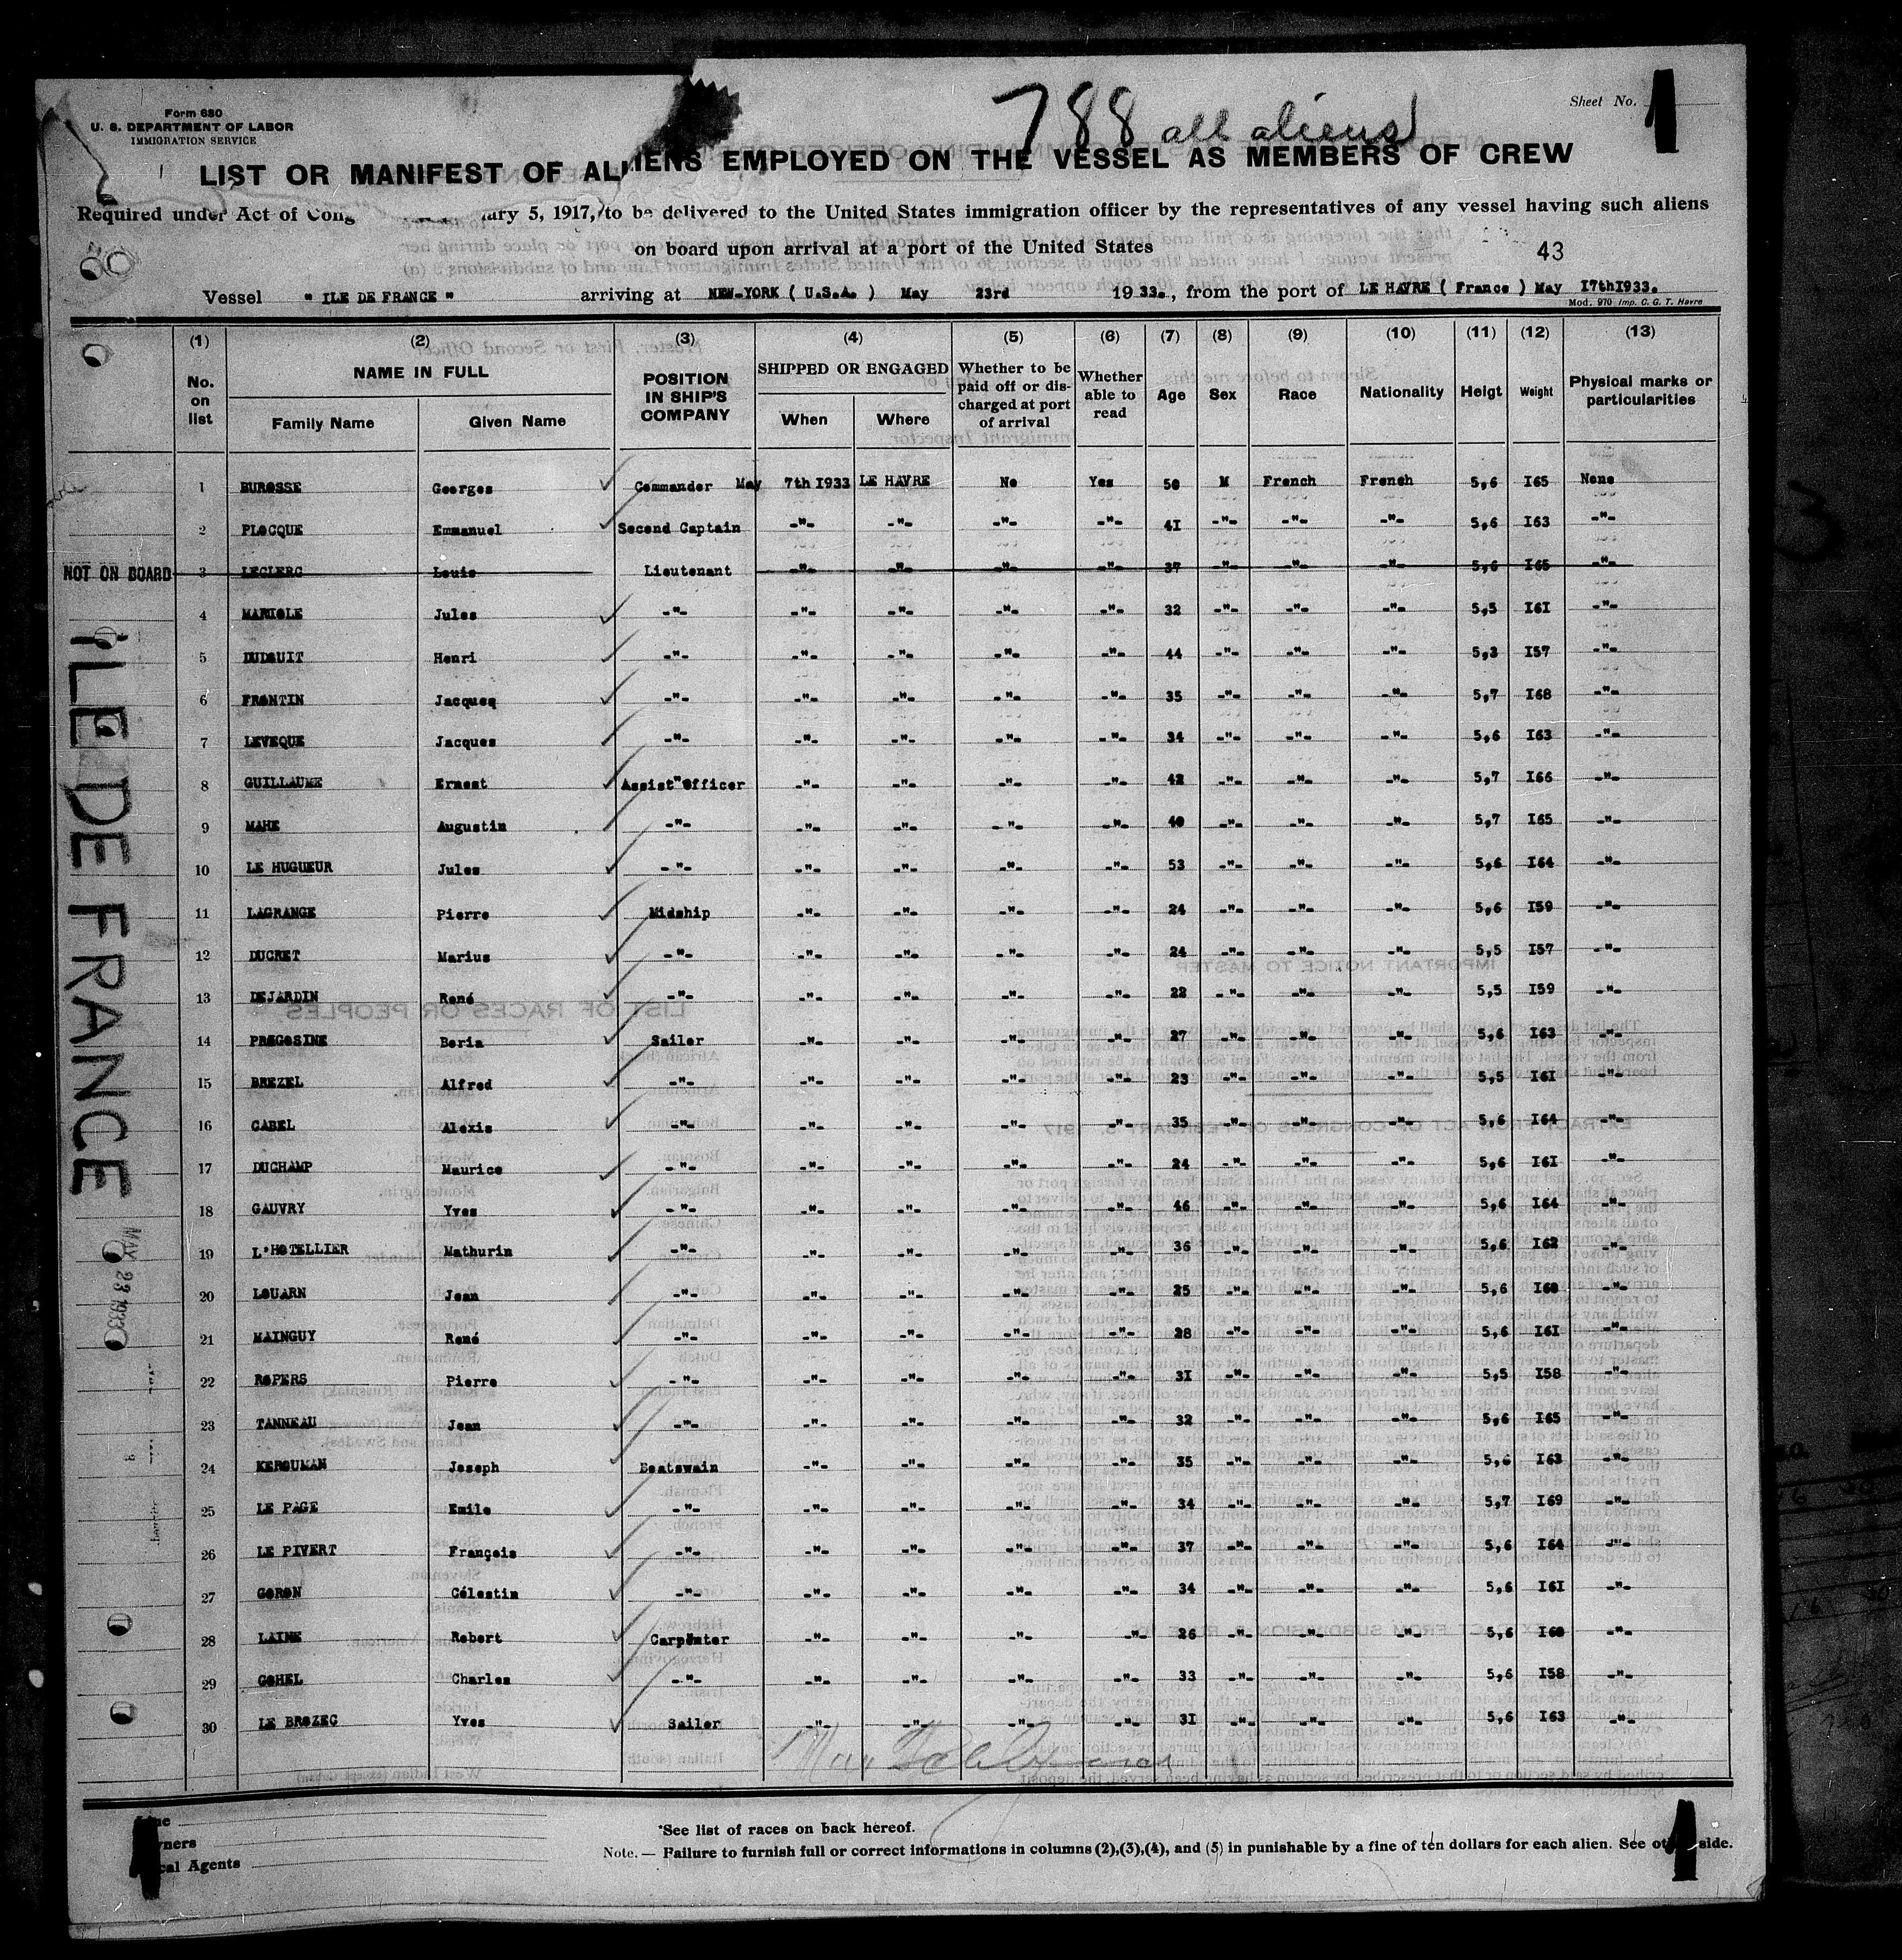 788 all aliens
Sheet No. 1
Form 680
U. S. DEPARTMENT OF LABOR
IMMIGRATION SERVICE
LIST OR MANIFEST OF ALIENS EMPLOYED ON THE VESSEL AS MEMBERS OF CREW
Required under Act of Cong ary 5, 1917, to be delivered to the United States immigration officer by the representatives of any vessel having such aliens
on board upon arrival at a port of the United States
43
Vessel " ILE DE FRANCE " arriving at NEW-YORK ( U.S.A. ) May 23rd 1933., from the port of LE HAVRE ( France ) May I7thI933.
Mod. 970 Imp. C. G. T. Havre
(1) (2) (3) (4) (5) (6) (7) (8) (9) (10) (11) (12) (13)
No. on list NAME IN FULL Family Name Given Name POSITION IN SHIP'S COMPANY SHIPPED OR ENGAGED When Where Whether to be paid off or discharged at port of arrival Whether able to read Age Sex Race Nationality Heigt Weight Physical marks or particularities
1 BUROSSE Georges Commander May 7th I933 LE HAVRE No Yes 50 M French French 5,6 I65 None
2 PLOCQUE Emmanuel Second Captain -"- -"- -"- -"- 4I -"- -"- -"- 5,6 I63 -"-
NOT ON BOARD 3 LECLERC Louis Lieutenant -"- -"- -"- -"- 37 -"- -"- -"- 5,6 I65 -"-
4 MARIOLE Jules -"- -"- -"- -"- -"- 32 -"- -"- -"- 5,5 I6I -"-
5 DUDOUIT Henri -"- -"- -"- -"- -"- 44 -"- -"- -"- 5,3 I57 -"-
6 FRONTIN Jacques -"- -"- -"- -"- -"- 35 -"- -"- -"- 5,7 I68 -"-
7 LEVEQUE Jacques -"- -"- -"- -"- -"- 34 -"- -"- -"- 5,6 I63 -"-
8 GUILLAUME Ernest Assist"Officer -"- -"- -"- -"- 42 -"- -"- -"- 5,7 I66 -"-
9 MAHE Augustin -"- -"- -"- -"- -"- 40 -"- -"- -"- 5,7 I65 -"-
10 LE HUGUEUR Jules -"- -"- -"- -"- -"- 53 -"- -"- -"- 5,6 I64 -"-
11 LAGRANGE Pierre Midship -"- -"- -"- -"- 24 -"- -"- -"- 5,6 I59 -"-
12 DUCRET Marius -"- -"- -"- -"- -"- 24 -"- -"- -"- 5,5 I57 -"-
13 DEJARDIN René -"- -"- -"- -"- -"- 22 -"- -"- -"- 5,5 I59 -"-
14 PREGOSINE Boria Sailor -"- -"- -"- -"- 27 -"- -"- -"- 5,6 I63 -"-
15 BREZEL Alfred -"- -"- -"- -"- -"- 23 -"- -"- -"- 5,5 I6I -"-
16 CABEL Alexis -"- -"- -"- -"- -"- 35 -"- -"- -"- 5,6 I64 -"-
17 DUCHAMP Maurice -"- -"- -"- -"- -"- 24 -"- -"- -"- 5,6 I6I -"-
18 GAUVRY Yves -"- -"- -"- -"- -"- 46 -"- -"- -"- 5,6 I64 -"-
19 L'HOTELLIER Mathurin -"- -"- -"- -"- -"- 36 -"- -"- -"- 5,6 I62 -"-
20 LOUARN Jean -"- -"- -"- -"- -"- 25 -"- -"- -"- 5,6 I60 -"-
21 MAINGUY René -"- -"- -"- -"- -"- 28 -"- -"- -"- 5,6 I6I -"-
22 ROPERS Pierre -"- -"- -"- -"- -"- 3I -"- -"- -"- 5,5 I58 -"-
23 TANNEAU Jean -"- -"- -"- -"- -"- 32 -"- -"- -"- 5,6 I65 -"-
24 KEROUMAN Joseph Boatswain -"- -"- -"- -"- 35 -"- -"- -"- 5,6 I63 -"-
25 LE PAGE Emile -"- -"- -"- -"- -"- 34 -"- -"- -"- 5,7 I69 -"-
26 LE PIVERT François -"- -"- -"- -"- -"- 37 -"- -"- -"- 5,6 I64 -"-
27 GORON Célestin -"- -"- -"- -"- -"- 34 -"- -"- -"- 5,6 I6I -"-
28 LAINE Robert Carpenter -"- -"- -"- -"- 26 -"- -"- -"- 5,6 I60 -"-
29 GOHEL Charles -"- -"- -"- -"- -"- 33 -"- -"- -"- 5,6 I58 -"-
30 LE BROZEC Yves Sailor -"- -"- -"- -"- 3I -"- -"- -"- 5,6 I63 -"-
ILE DE FRANCE
MAY 23 1933
*See list of races on back hereof.
Note. — Failure to furnish full or correct informations in columns (2),(3),(4), and (5) in punishable by a fine of ten dollars for each alien. See other side.
Agents